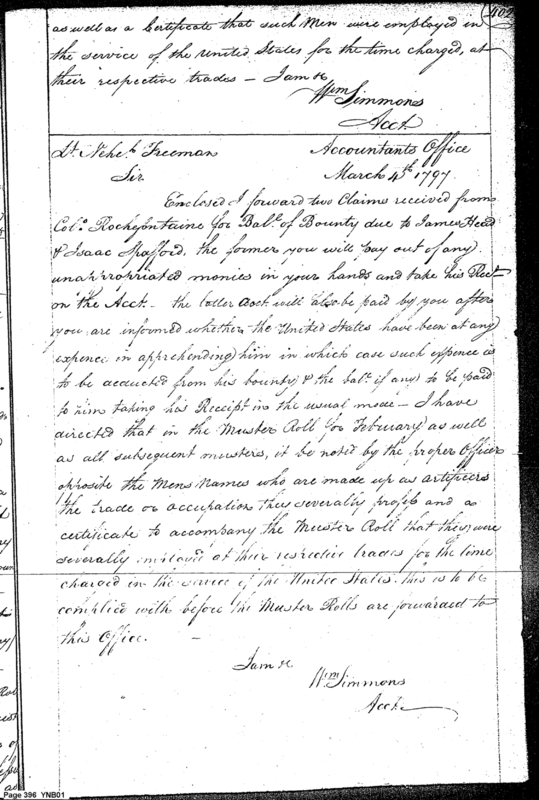 402
as well as a Certificate that such Men were employed in
the service of the United States for the time charged, at
their respective trades – I am &c
Wm Simmons
Acct.
Lt. Nehe.h Freeman
Accountants Office
Sir
March 4th 1797.
Enclosed I forward two Claims received from
Colo. Rochefontaine for Bale. of Bounty due to James Head
& Isaac Spafford, the former you will pay out of any
unappropriated monies in your hands and take his Rect
on the Acct – the latter Acct will also be paid by you after
you are informed whether the United States have been at any
expence in apprehending him in which case such expence is
to be deducted from his bounty & the bale. if any to be paid
to him taking his Receipt in the usual mode – I have
directed that in the Muster Roll for February as well
as all subsequent musters, it be noted by the proper Officer
opposite the Mens Names who are made up as artificers
the trade or occupation they severally profess and a
certificate to accompany the Muster Roll that they were
severally employed at their respective trades for the time
charged in the service of the United States. this is to be
complied with before the Muster Rolls are forwarded to
this Office. –
I am &c
Wm Simmons
Acct.
Page 396 YNB01